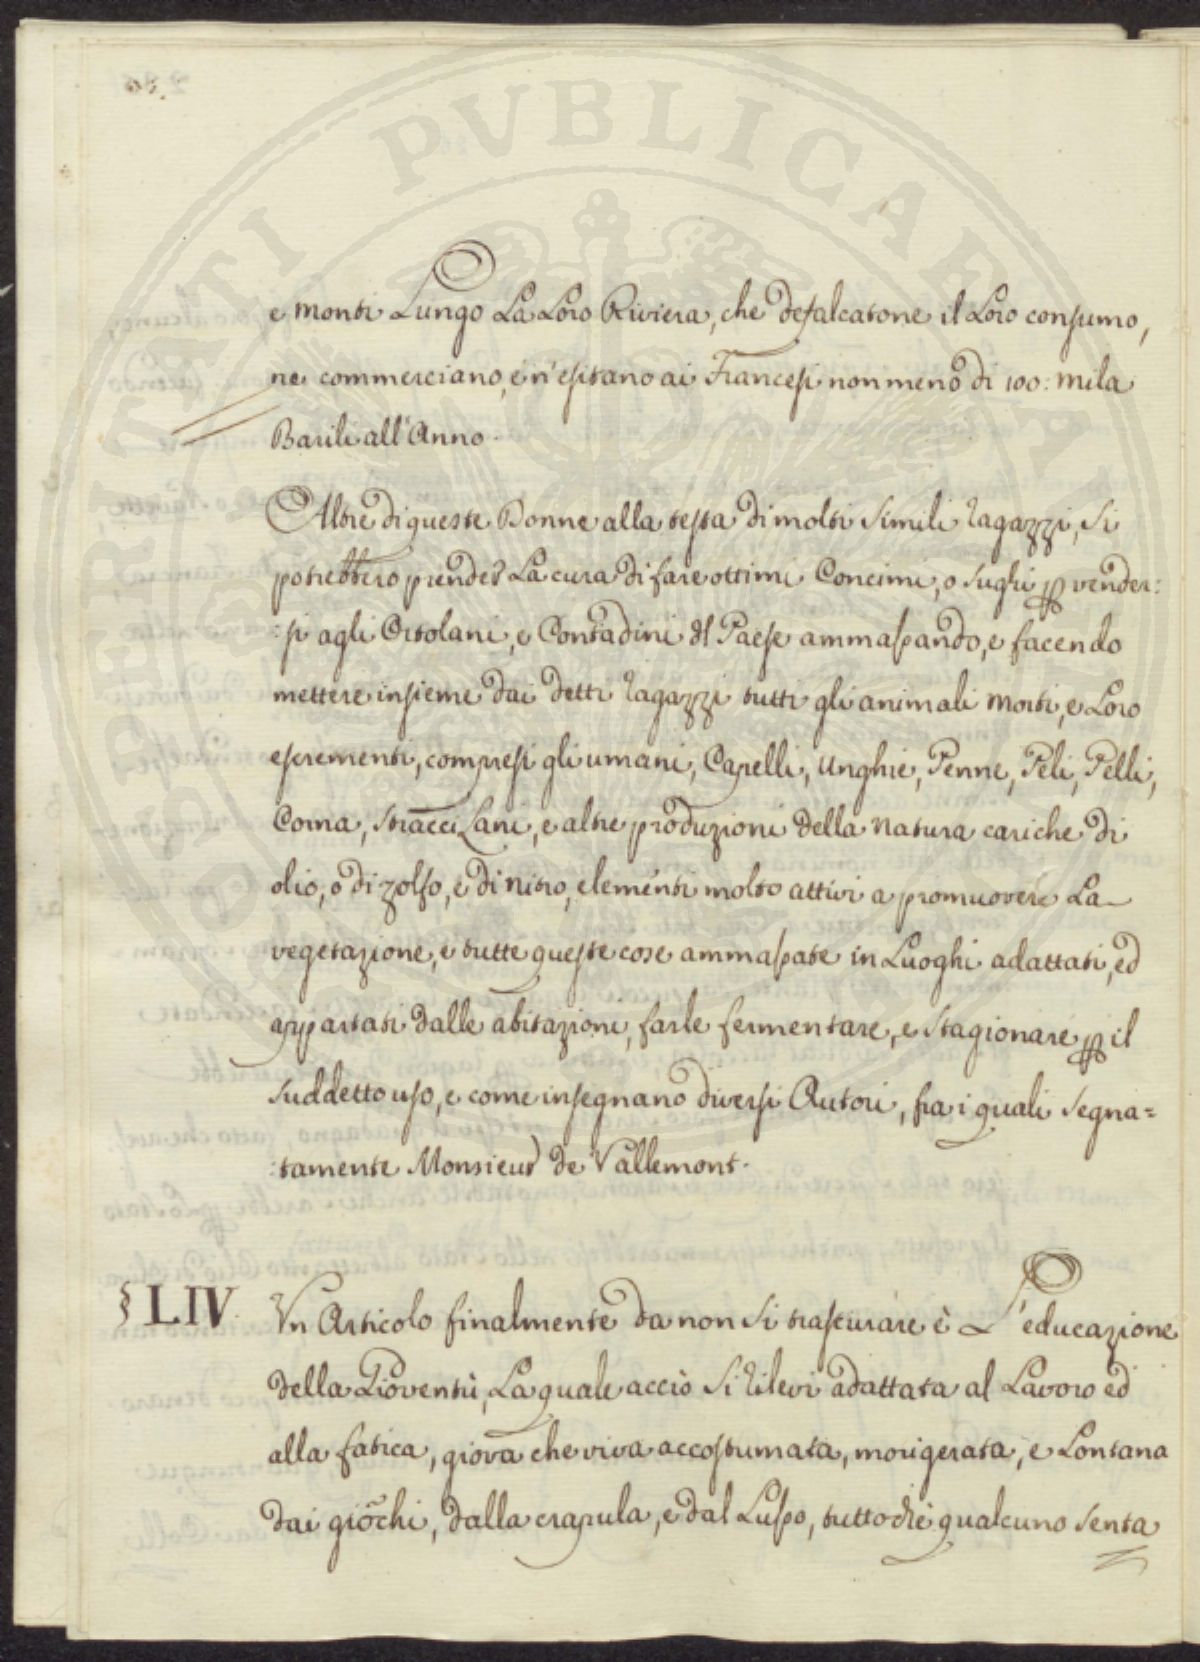 e monti Lungo La Loro Riviera, che defalcatone il Loro consumo,
ne commerciano, e n'esitano ai Francesi non meno di 100: mila
Barili all'Anno.
Altre di queste Donne alla testa di molti simili ragazzi, si
potrebbero prender La cura di fare ottimi Concimi, o sughi ꝑ vender:
:si agli Ortolani, e Contadini del Paese ammassando, e facendo
mettere insieme dai detti ragazzi tutti gli animali morti, e Loro
escrementi, compresi gli umani, Capelli, Unghie, Penne, Peli, Pelli,
Corna, stracci Lani, e altre produzioni della natura cariche di
olio, o di zolfo, e di nitro, elementi molto attivi a promuovere La
vegetazione, e tutte queste cose ammassate in Luoghi adattati, ed
appartati dalle abitazioni, farle fermentare, e stagionare ꝑ il
suddetto uso, e come insegnano diversi Autori, fra i quali segna=
:tamente Monsieur de Vallemont.
§ LIV. Un Articolo finalmente da non si trascurare è L'educazione
della Gioventù, La quale acciò si rilevi adattata al Lavoro ed
alla fatica, giova che viva accostumata, morigerata, e Lontana
dai giochi, dalla crapula, e dal Lusso, tuttochè qualcuno senta
PERITATI PVBLICAE